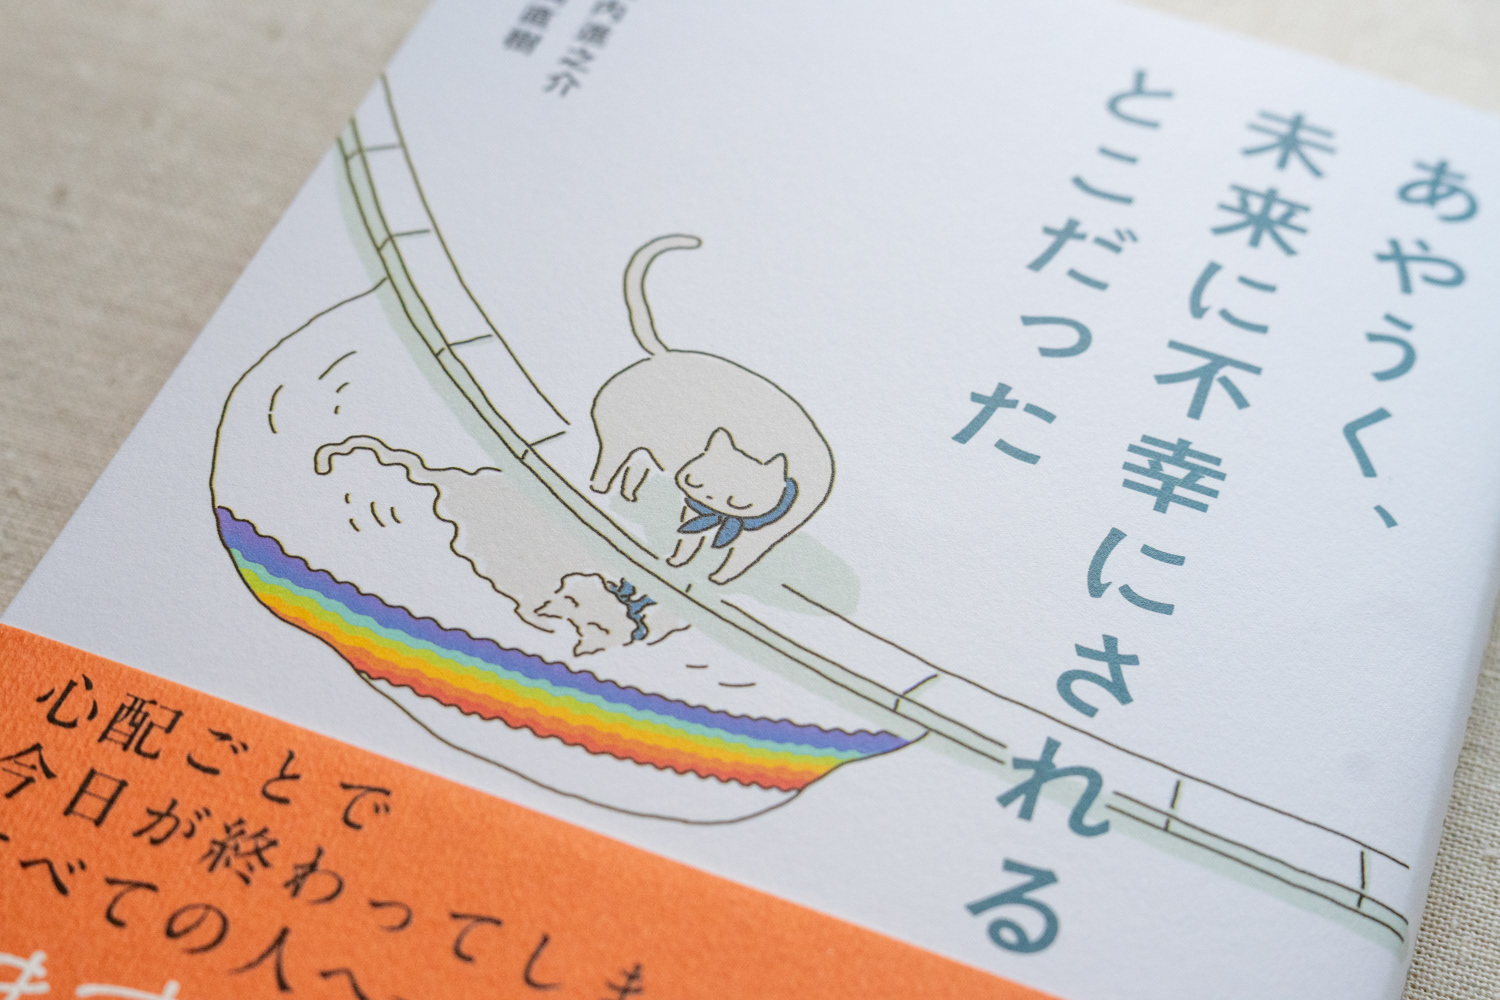 あやうく、
未来に不幸にされる
ところだった
内進之介
直樹
心配ごとで
今日が終わってしま
べての人へ